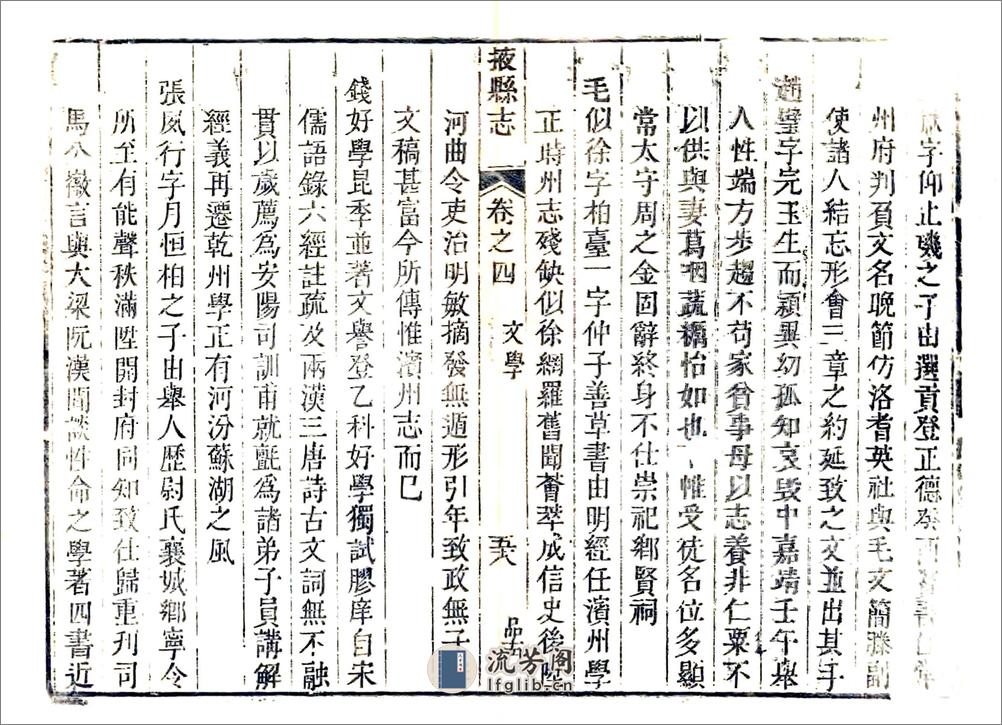 字仰止㬢之子由選貢登正德癸酉
州府判頁文名晚節仿洛耆英社與毛文簡滕副
使諸人結忘形會三章之約延致之文並出其手
趙璧字完玉生而穎異幼孤知哀毀中嘉靖壬午舉
人性端方步趨不苟家貧事母以志養非仁粟不
以供與妻葛咽蔬糲怡如也惟受徒名位多顯
常太守周之金固辭終身不仕崇祀鄉賢祠
毛似徐字柏臺一字仲子善草書由明經任濱州學
正時州志殘缺似徐網羅舊聞薈萃成信史後陞
河曲令吏治明敏摘發無遁形引年致政無子
文稿甚富今所傳惟濱州志而已
掖縣志 卷之四 文學 五六
錢好學昆季並著文譽登乙科好學獨試膠庠自宋
儒語錄六經註疏及兩漢三唐詩古文詞無不融
貫以歲薦為安陽司訓甫就氈為諸弟子員講解
經義再遷乾州學正有河汾蘇湖之風
張夙行字月恒柏之子由舉人歷尉氏襄城鄉寧令
所至有能聲秩滿陞開封府同知致仕歸重刊司
馬 徽言與大梁阮漢聞談性命之學著四書近
流芳閣
lfglib.cn